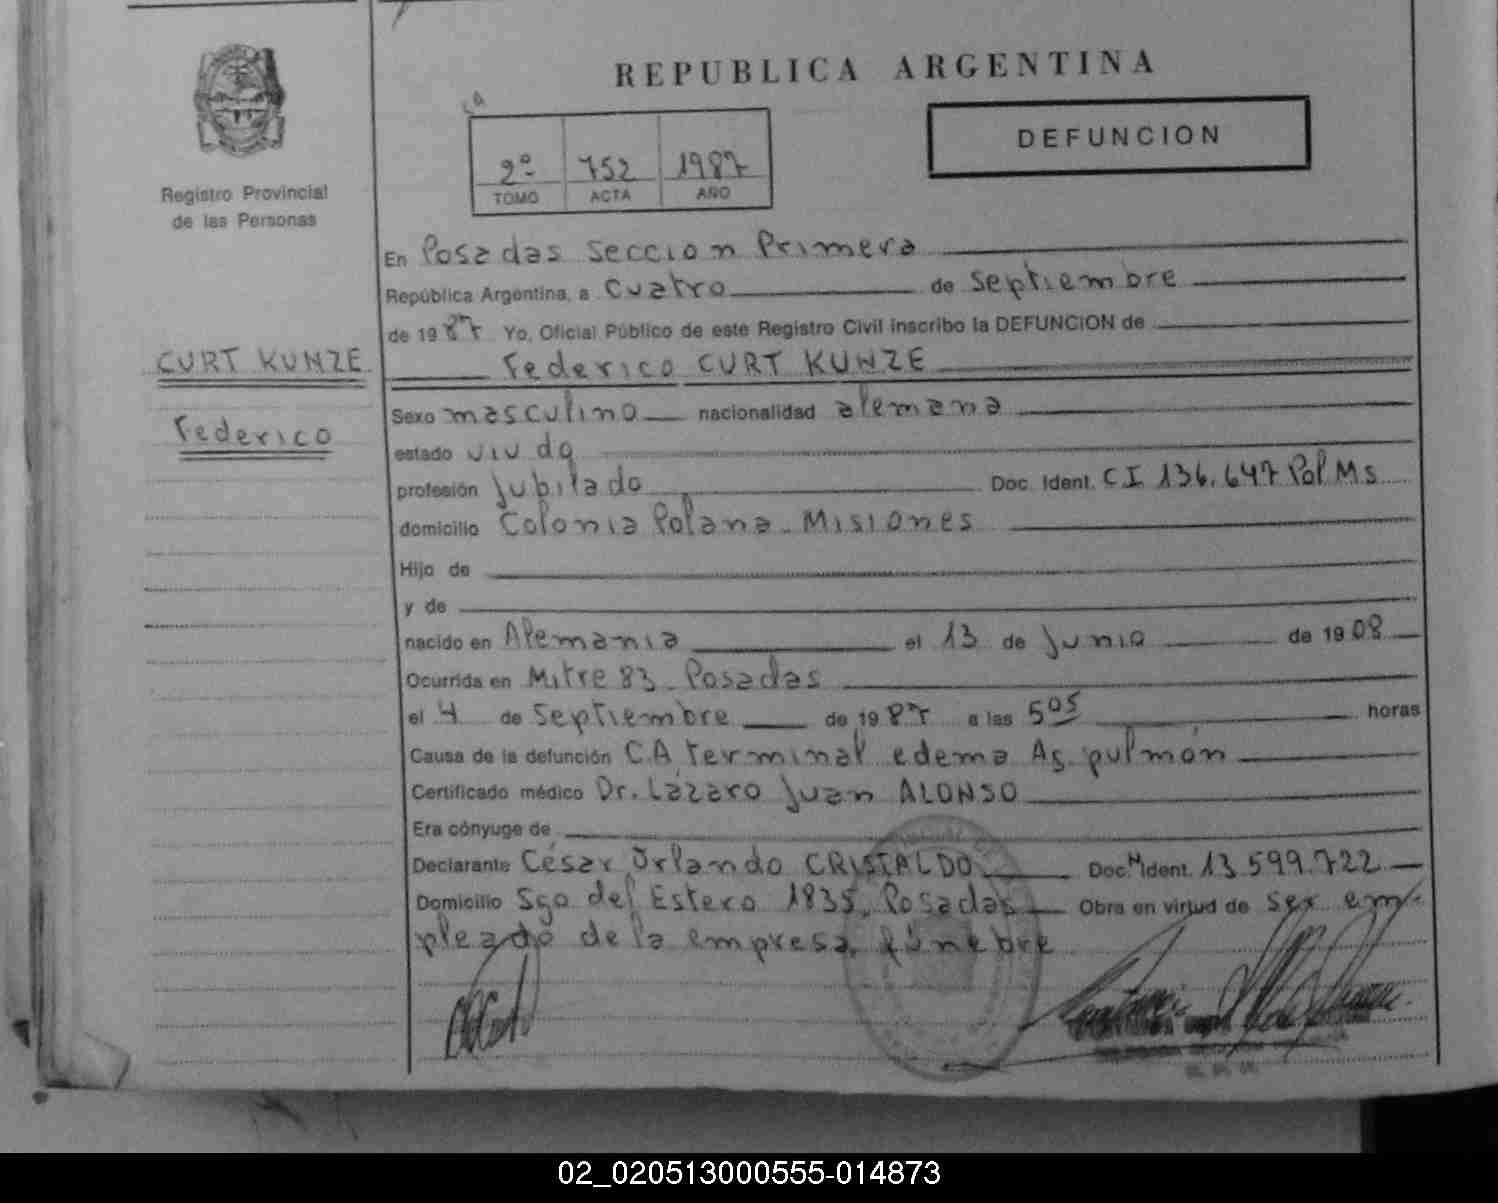 REPUBLICA ARGENTINA
DEFUNCION
2º 752 1987
TOMO ACTA AÑO
Registro Provincial
de las Personas
CURT KUNZE
Federico
En Posadas Seccion Primera
República Argentina, a Cuatro de Septiembre
de 1987 Yo, Oficial Público de este Registro Civil inscribo la DEFUNCION de
Federico CURT KUNZE
Sexo masculino nacionalidad alemana
estado viudo
profesión Jubilado Doc. Ident. C.I 136.647 Pol Ms
domicilio Colonia Polana - Misiones
Hijo de
y de
nacido en Alemania el 13 de Junio de 1908
Ocurrida en Mitre 83 - Posadas
el 4 de Septiembre de 1987 a las 5 05 horas
Causa de la defunción C.A terminal edema Ag. pulmón
Certificado médico Dr. Lázaro Juan ALONSO
Era cónyuge de
Declarante César Orlando CRISTALDO Doc. Ident. 13.599.722
Domicilio Sgo del Estero 1835, Posadas Obra en virtud de ser em-
pleado de la empresa fúnebre
02_020513000555-014873